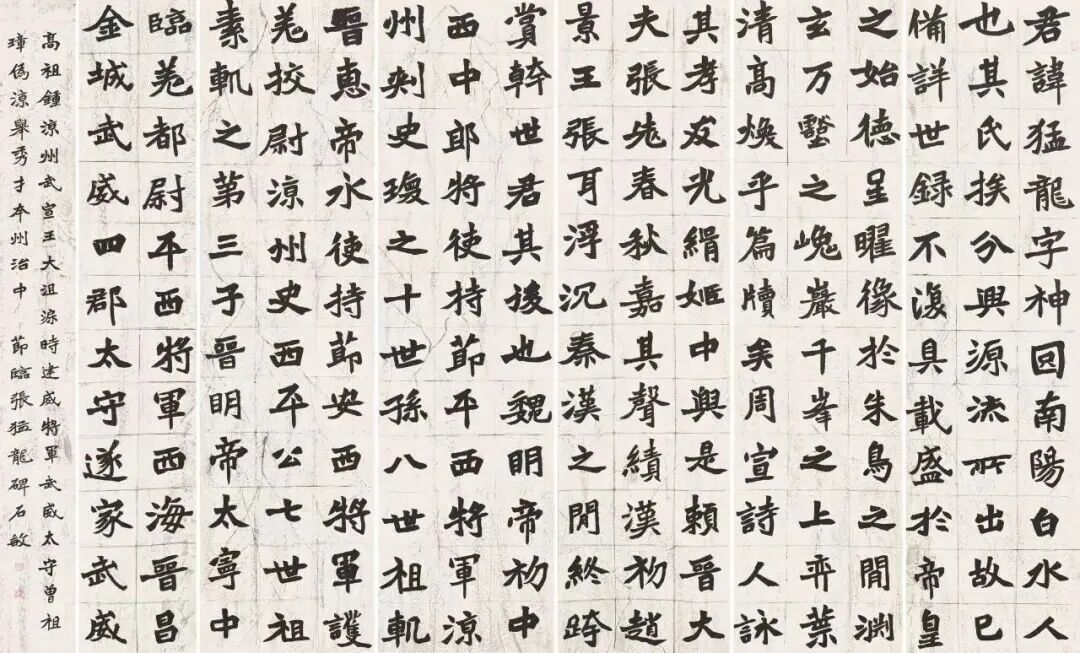 君諱猛龍字神冏南陽白水人
也其氏挨分興源流所出故已
備詳世録不復具載盛於帝皇
之始德呈曜像於朱鳥之閒淵
玄万壑之巉巖千峯之上弈葉
清高煥乎篇牘矣周宣詩人詠
其孝友光緝姬中興是賴晉大
夫張老春秋嘉其聲績漢初趙
景王張耳浮沉秦漢之閒終跨
賞幹世君其後也魏明帝初中
西中郎將使持節平西將軍涼
州刺史瑍之十世孫八世祖軌
晉惠帝永使持節安西將軍護
羌挍尉涼州史西平公七世祖
素軌之第三子晉明帝太寧中
臨羌都尉平西將軍西海晉昌
金城武威四郡太守遂家武威
高祖鍾涼州武宣王大沮渠時建威將軍武威太守曾祖
璋偽涼舉秀才本州治中 節臨張猛龍碑石敏